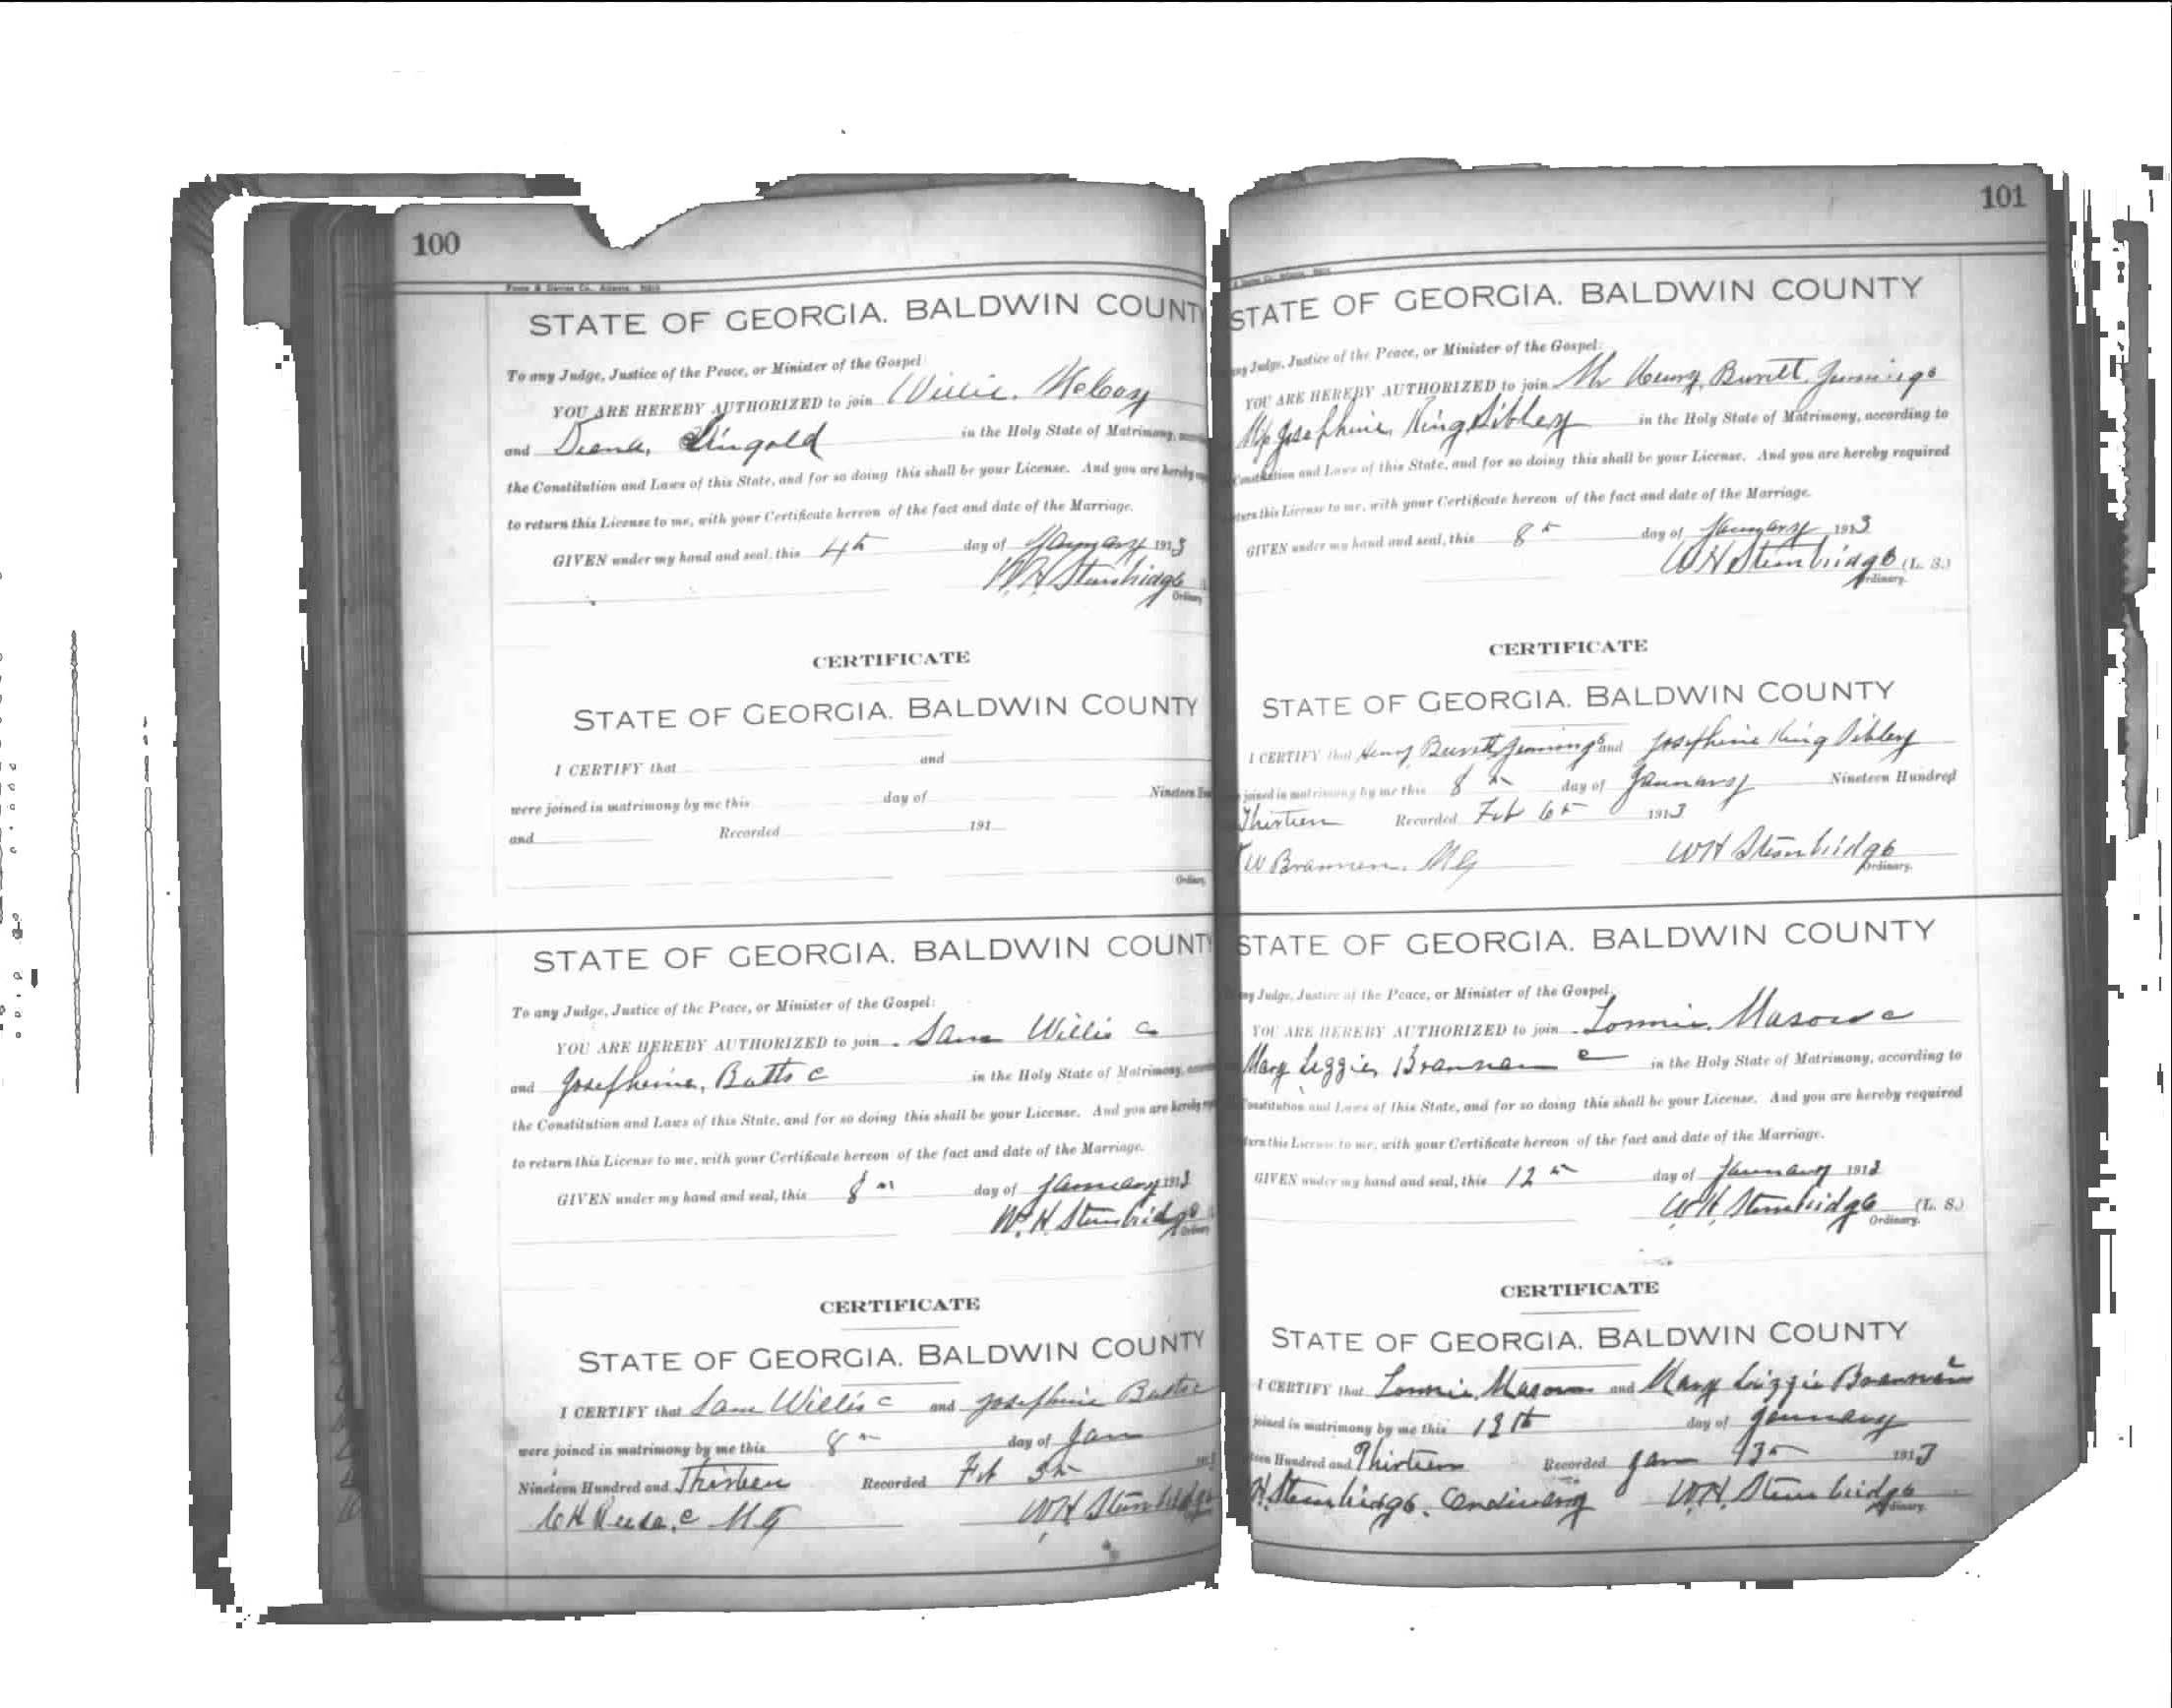 100
STATE OF GEORGIA. BALDWIN COUNT
To any Judge, Justice of the Peace, or Minister of the Gospel:
YOU ARE HEREBY AUTHORIZED to join Willie.
and Diana, in the Holy State of Matrimony,
the Constitution and Laws of this State, and for so doing this shall be your License. And you are hereby
to return this License to me, with your Certificate hereon of the fact and date of the Marriage.
GIVEN under my hand and seal, this 4th day of January 1913
W. H. Stembridge
Ordinary
CERTIFICATE
STATE OF GEORGIA. BALDWIN COUNTY
I CERTIFY that and
were joined in matrimony by me this day of Nineteen
and Recorded 191
Ordinary
STATE OF GEORGIA. BALDWIN COUNT
To any Judge, Justice of the Peace, or Minister of the Gospel:
YOU ARE HEREBY AUTHORIZED to join Sam Willis c
and Josephine, Butts c in the Holy State of Matrimony,
the Constitution and Laws of this State, and for so doing this shall be your License. And you are hereby
to return this License to me, with your Certificate hereon of the fact and date of the Marriage.
GIVEN under my hand and seal, this 8th day of January 1913
W. H. Stembridge
Ordinary
CERTIFICATE
STATE OF GEORGIA. BALDWIN COUNTY
I CERTIFY that Sam Willis c and Josephine Butts c
were joined in matrimony by me this 8th day of Jan
Nineteen Hundred and Thirteen Recorded Feb 5th
M.G WH Stembridge
101
STATE OF GEORGIA. BALDWIN COUNTY
ny Judge, Justice of the Peace, or Minister of the Gospel:
YOU ARE HEREBY AUTHORIZED to join Mr Henry, Burett, Jennings
Josephine, King Sibley in the Holy State of Matrimony, according to
Constitution and Laws of this State, and for so doing this shall be your License. And you are hereby required
turn this License to me, with your Certificate hereon of the fact and date of the Marriage.
GIVEN under my hand and seal, this 8th day of January 1913
W H Stembridge (L. S.)
Ordinary.
CERTIFICATE
STATE OF GEORGIA. BALDWIN COUNTY
I CERTIFY that Henry Burett Jennings and Josephine King Sibley
joined in matrimony by me this 8th day of January Nineteen Hundred
Thirteen Recorded Feb 6th 1913
W Brannen, MG WH Stembridge
Ordinary.
STATE OF GEORGIA. BALDWIN COUNTY
ny Judge, Justice of the Peace, or Minister of the Gospel:
YOU ARE HEREBY AUTHORIZED to join Lonnie, Mason c
Mary Lizzie, Brannan c in the Holy State of Matrimony, according to
Constitution and Laws of this State, and for so doing this shall be your License. And you are hereby required
turn this License to me, with your Certificate hereon of the fact and date of the Marriage.
GIVEN under my hand and seal, this 12th day of January 1913
W. H. Stembridge (L. S.)
Ordinary.
CERTIFICATE
STATE OF GEORGIA. BALDWIN COUNTY
I CERTIFY that Lonnie, Mason and Mary Lizzie Brannan c
joined in matrimony by me this 13th day of January
teen Hundred and Thirteen Recorded Jan 13th 1913
H. Stembridge. Ordinary W. H. Stembridge
Ordinary.